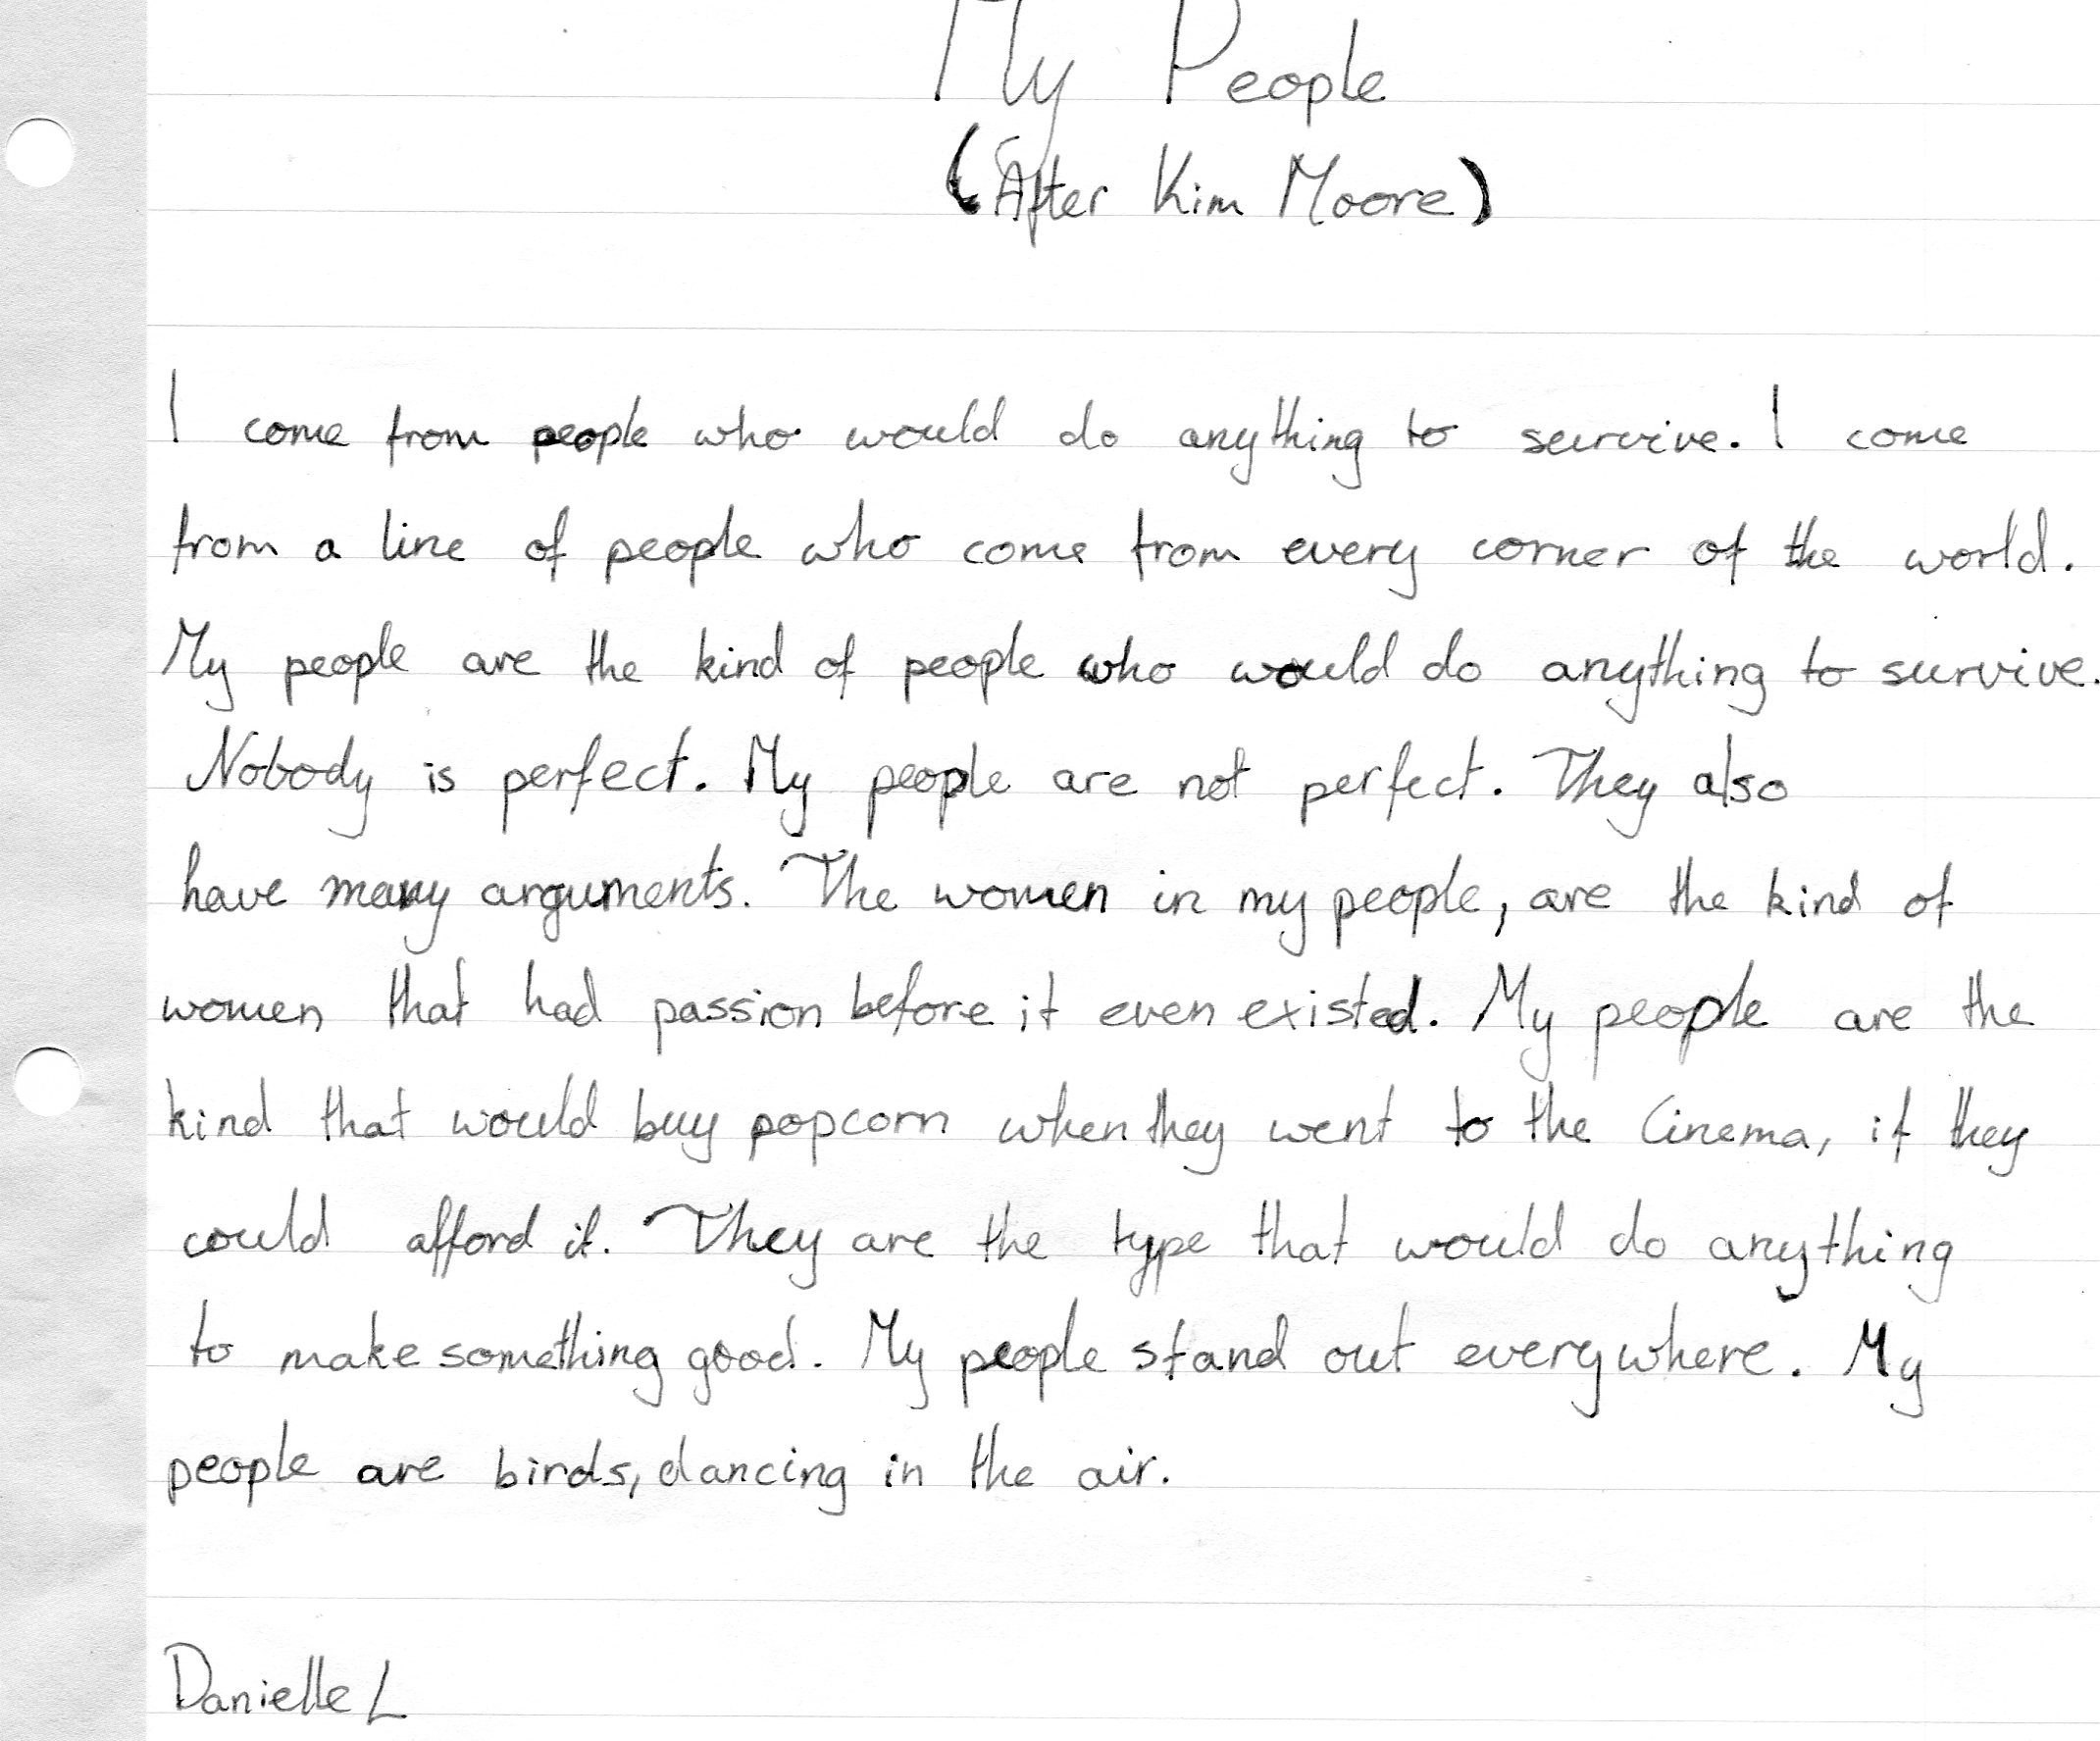 My People
(After Kim Moore)
I come from people who would do anything to survive. I come
from a line of people who come from every corner of the world.
My people are the kind of people who would do anything to survive.
Nobody is perfect. My people are not perfect. They also
have many arguments. The women in my people, are the kind of
women that had passion before it even existed. My people are the
kind that would buy popcorn when they went to the Cinema, if they
could afford it. They are the type that would do anything
to make something good. My people stand out everywhere. My
people are birds, dancing in the air.
Danielle L